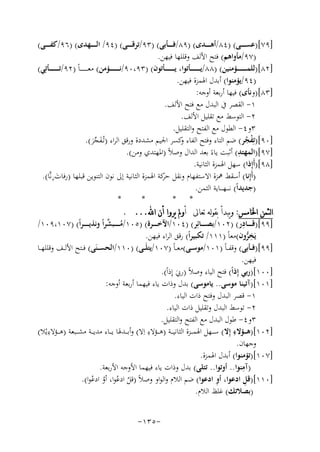 [٧٩](عســى) (٨٤/أهـدى) (٨٩/فــأبى) (٩٣/ترقــى) (٩٤/ الــهدى) (٩٦/كفــى)
(٩٧/مأواهم) فتح الألف وقللها فيهن.
[٨٢](للمــؤمنين) (٨٨/يــأتوا، يــأتون) (٩٠،٩٣/نــؤمن) معــاً (٩٢/تــأتي)
(٩٤/يؤمنوا) أبدل الهمزة فيهن.
[٨٣](ونأى) فيها أربعة أوجه:
١- القصر في البدل مع فتح الألف.
٢- التوسط مع تقليل الألف.
٣و٤- الطول مع الفتح والتقليل.
[٩٠](تَفْجُر) ضم التاء وفتح الفاء وكسر الجيم مشددة ورقق الراء (تُفَجِّرَ).
[٩٧](المهتدِ) أثبت ياءً بعد الدال وصلاً (المهتدي ومن).
[٩٨](أإذا) سهل الهمزة الثانية.
(أإنا) أسقط همزة الاستفهام ونقل حركة الهمزة الثانية إلى نون التنوين قبلها (رفاتَنِ نَّا).
(جديداً) نهاية الثمن.
* * * *
الثمن الخامس: ويبدأ بقوله تعالى أولم يروا أن الله... .
[٩٩](قــادِر) (١٠٢/بصــائِر) (١٠٤/الآخــرة) (١٠٥/مُبــشِّراً ونذيــراً) (١٠٧،١٠٩/
يَخِرُّون)معاً (١١١/ تكبيراً) رقق الراء فيهن.
[٩٩](فــأبى) وقفــاً (١٠١/موســى)معــاً (١٠٧/يتلــى) (١١٠/الحســنى) فتح الألف وقللهــا
فيهن.
[١٠٠](ربي إذاً) فتح الياء وصلاً (ربيَ إذاً).
[١٠١](آتينا موسى.. ياموسى) بدل وذات ياء فيهما أربعة أوجه:
١- قصر البدل وفتح ذات الياء.
٢- توسط البدل وتقليل ذات الياء.
٣و٤- طول البدل مع الفتح والتقليل.
[١٠٢](هـؤلاءِ إلا) سهل الهمزة الثانية (هـؤلاءِ إلا) وأبدلها ياء مدية مشبعة (هـؤلاءِيْلا)
وجهان.
[١٠٧](تؤمنوا) أبدل الهمزة.
(آمنوا.. أوتوا.. تتلى) بدل وذات ياء فيهما الأوجه الأربعة.
[١١٠](قلِ ادعوا، أوِ ادعوا) ضم اللام والواو وصلاً (قلُ ادعُوا، أوُ ادعُوا).
(بصلاتك) غلظ اللام.
-١٣٥-